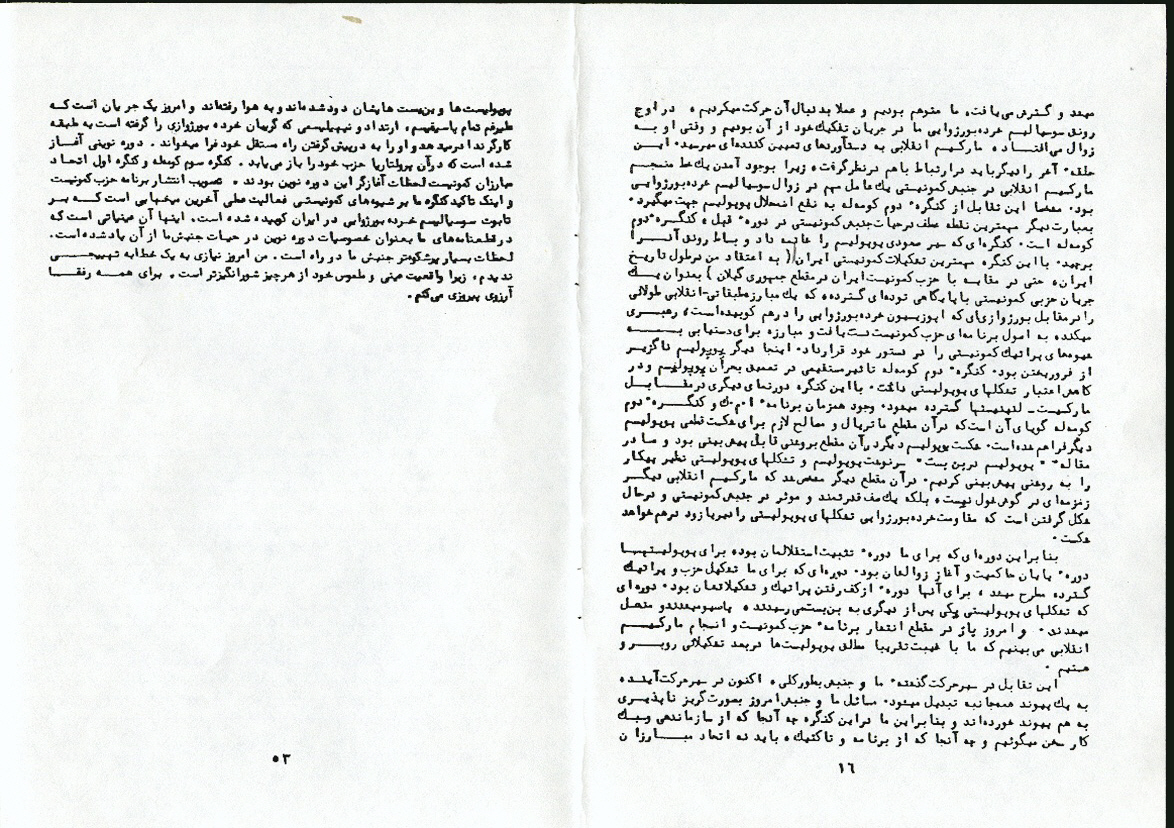 میشد و گسترش می‌یافت، ما متوهم بودیم و عملا بدنبال آن حرکت میکردیم ، در اوج
رونق سوسیالیسم خرده بورژوایی ما در جریان تفکیک خود از آن بودیم و وقتی او به
زوال می‌افتاد، مارکسیسم انقلابی به دستآوردهای تعیین کننده‌ای میرسید. ایـن
حلقهٔ آخر را دیگر باید در ارتباط باهم در نظر گرفت، زیرا بوجود آمدن یک خط منسجم
مارکسیسم انقلابی در جنبش کمونیستی یک عامل مهم در زوال سوسیالیسم خرده بورژوایی
بود. مشخصا این تقابل از کنگرهٔ دوم کومه‌له به نفع انحلال پوپولیسم جهت میگیرد.
بعبارت دیگر مهمترین نقطه عطف در حیات جنبش کمونیستی در دورهٔ قبل، کنگـرهٔ دوم
کومه‌له است. کنگره‌ای که سیر صعودی پوپولیسم را خاتمه داد و بساط رونق آنـرا
برچید. با این کنگره مهمترین تشکیلات کمونیستی ایران ( به اعتقاد من در طول تاریخ
ایران، حتی در مقایسه با حزب کمونیست ایران در مقطع جمهوری گیلان ) بعنوان یـک
جریان حزبی کمونیستی با پایگاهی توده‌ای گسترده، که یک مبارزه طبقاتی-انقلابی طولانی
را در مقابل بورژوازی‌ای که اپوزیسیون خرده بورژوایی را درهم کوبیده است، رهبـری
میکند، به اصول برنامه‌ای حزب کمونیست دست یافت و مبارزه برای دستیابی بـــه
شیوه‌های پراتیک کمونیستی را در دستور خود قرار داد. اینجا دیگر پوپولیسم ناگزیر
از فرو ریختن بود. کنگرهٔ دوم کومه‌له تاثیر مستقیمی در تعمیق بحران پوپولیسم و در
کاهش اعتبار تشکلهای پوپولیستی داشت. با این کنگره دورنمای دیگری در مقـابـل
مارکسیست - لنینیستها گسترده میشود. وجود همزمان برنامهٔ ا.م.ک و کنگــرهٔ دوم
کومه‌له گویای آن است که در آن مقطع ماتریال و مصالح لازم برای شکست قطعی پوپولیسم
دیگر فراهم شده است. شکست پوپولیسم دیگر در آن مقطع بروشنی قابل پیش بینی بود و ما در
مقالهٔ " پوپولیسم در بن بست" سرنوشت پوپولیسم و تشکلهای پوپولیستی نظیر پیکار
را به روشنی پیش بینی کردیم. در آن مقطع دیگر مشخص شد که مارکسیسم انقلابی دیگـر
زمزمه‌ای در گوش غول نیست، بلکه یک صف قدرتمند و موثر در جنبش کمونیستی و در حال
شکل گرفتن است که مقاومت خرده بورژوایی تشکلهای پوپولیستی را دیر یا زود درهم خواهد
شکست.
بنابراین دوره‌ای که برای ما دورهٔ تثبیت استقلالمان بوده برای پوپولیستهـا
دورهٔ پایان حاکمیت و آغاز زوالشان بود. دوره‌ای که برای ما تشکیل حزب و پراتیک
گسترده مطرح میشد ، برای آنها دورهٔ از کف رفتن پراتیک و تشکیلاتشان بود. دوره‌ای
که تشکلهای پوپولیستی یکی پس از دیگری به بن بست میرسیدند، پاسیو میشدند و منحل
میشدند. و امروز باز در مقطع انتشار برنامهٔ حزب کمونیست و انسجام مارکسیسـم
انقلابی می‌بینیم که ما با غیبت تقریبا مطلق پوپولیست‌ها در بعد تشکیلاتی روبـرو
هستیم .
این تقابل در سیر حرکت گذشتهٔ ما و جنبش بطور کلی، اکنون در سیر حرکت آینـده
به یک پیوند همه‌جانبه تبدیل میشود. مسائل ما و جنبش امروز بصورت گریز ناپذیـری
به هم پیوند خورده‌اند و بنابراین ما در این کنگره چه آنجا که از سازماندهی و سبـک
کار سخن میگوئیم و چه آنجا که از برنامه و تاکتیک، باید نه اتحاد مبـــارزان
۱٦
پوپولیست‌ها و بن‌بست هایشان دود شده‌اند و به هوا رفته‌اند و امروز یک جریان است کـه
علیرغم تمام پاسیفیسم، ارتداد و نیهیلیسمی که گریبان خرده بورژوازی را گرفته است به طبقه
کارگر ندا در میدهد و او را به در پیش گرفتن راه مستقل خود فرا میخواند . دوره نوینی آغـاز
شده است که در آن پرولتاریا حزب خود را باز می‌یابد . کنگره سوم کومه‌له و کنگره اول اتحـاد
مبارزان کمونیست لحظات آغازگر این دوره نوین بودند . تصویب انتشار برنامه حزب کمونیست
و اینک تاکید کنگره ما بر شیوه‌های کمونیستی فعالیت عملی آخرین میخهایی است کـــه بـر
تابوت سوسیالیسم خرده بورژوایی در ایران کوبیده شده است. اینها آن عینیاتی است که
در قطعنامه‌های ما بعنوان خصوصیات دوره نوین در حیات جنبش ما از آن یاد شده است.
لحظات بسیار پرشکوهتر جنبش ما در راه است . من امروز نیازی به یک خطابه تهییجـی
ندیدم، زیرا واقعیت عینی و ملموس خود از هر چیز شورانگیزتر است . برای همــه رفقـا
آرزوی پیروزی می‌کنم .
۵۳